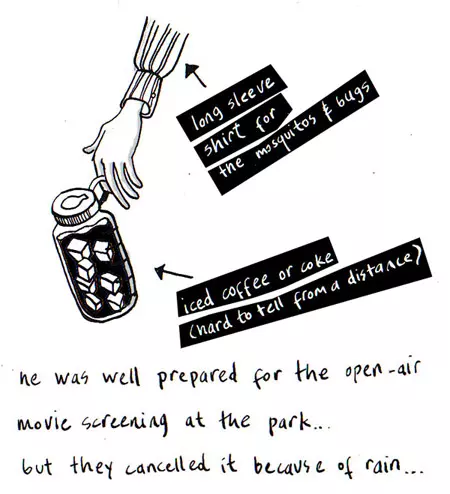 long sleeve
shirt for
the mosquitos & bugs
iced coffee or coke
(hard to tell from a distance)
he was well prepared for the open-air
movie screening at the park...
but they cancelled it because of rain...